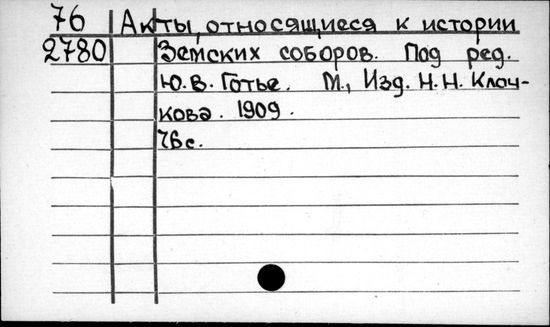 76 Акты, относящиеся к истории
2780 Земских соборов. Под ред.
Ю.В. Готье. М., Изд. Н.Н. Клоч-
кова. 1909.
76с.